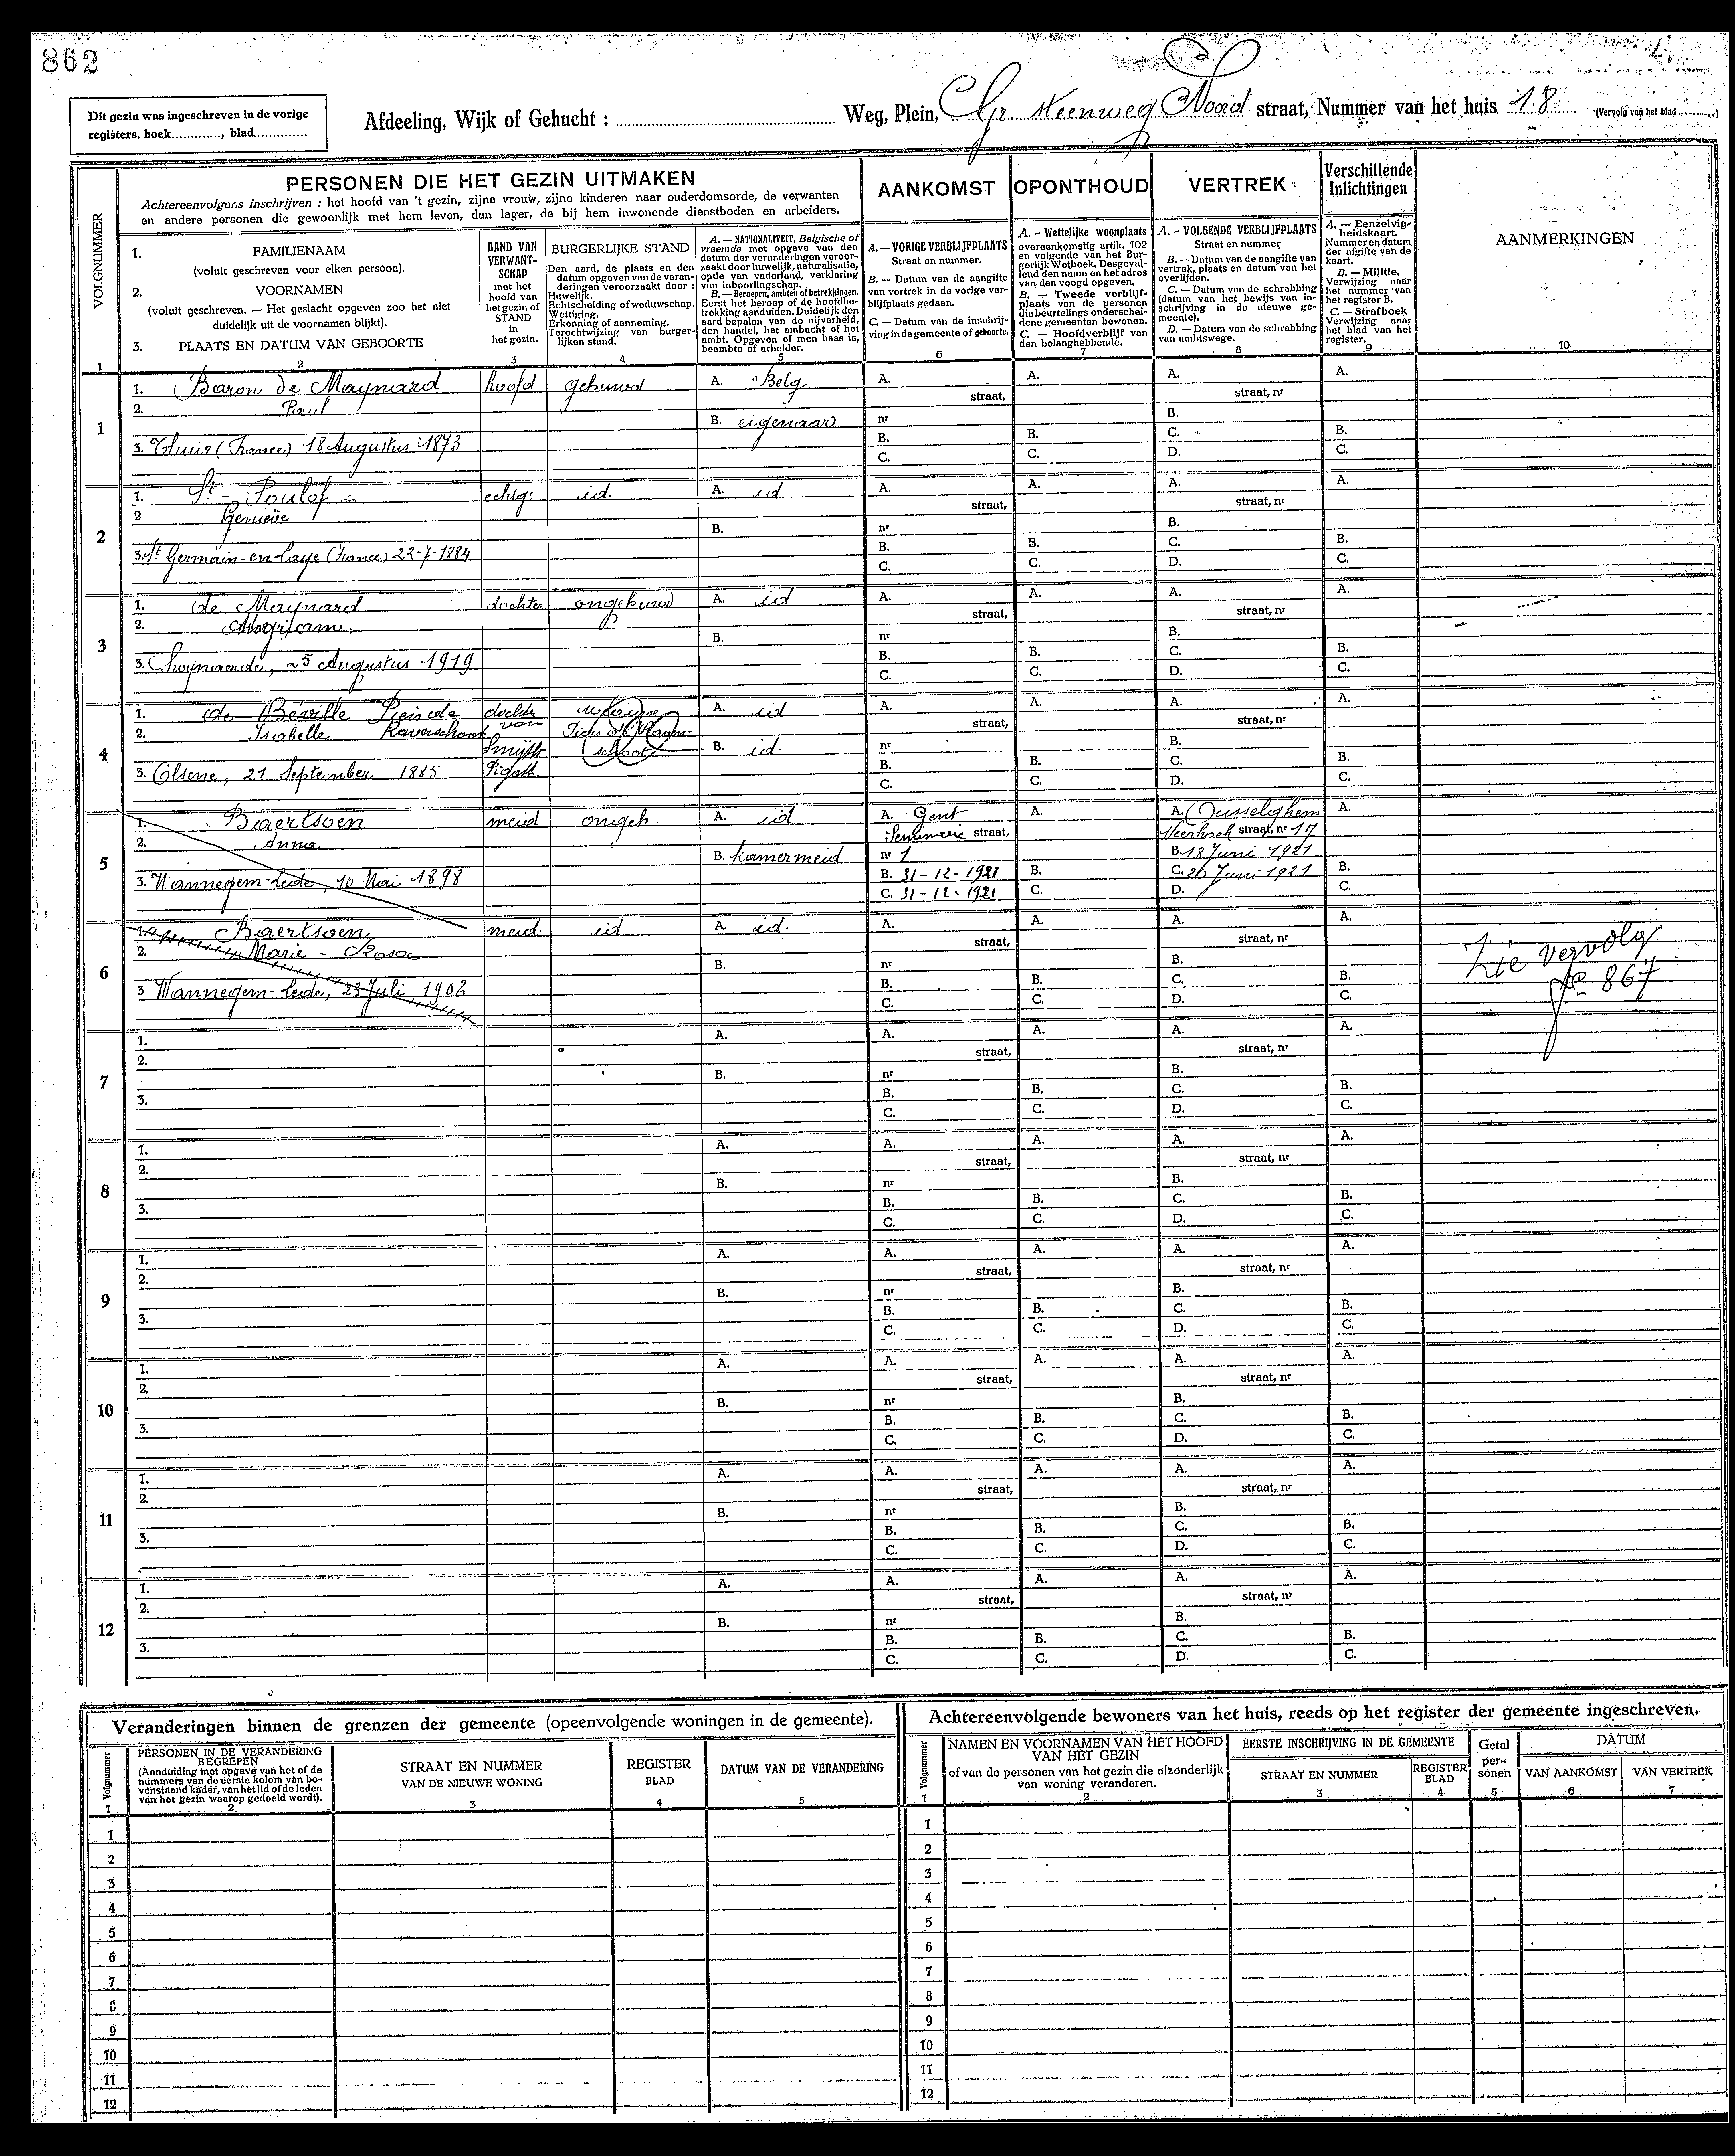 862
Dit gezin was ingeschreven in de vorige
registers, boek............, blad.............
Afdeeling, Wijk of Gehucht :
Weg, Plein, Gr. steenweg Noord straat, Nummer van het huis 18 (Vervolg van het blad ..........)
VOLGNUMMER
PERSONEN DIE HET GEZIN UITMAKEN
Achtereenvolgens inschrijven : het hoofd van 't gezin, zijne vrouw, zijne kinderen naar ouderdomsorde, de verwanten
en andere personen die gewoonlijk met hem leven, dan lager, de bij hem inwonende dienstboden en arbeiders.
AANKOMST
OPONTHOUD
VERTREK
Verschillende
Inlichtingen
AANMERKINGEN
1. FAMILIENAAM
(voluit geschreven voor elken persoon).
2. VOORNAMEN
(voluit geschreven. — Het geslacht opgeven zoo het niet
duidelijk uit de voornamen blijkt).
3. PLAATS EN DATUM VAN GEBOORTE
BAND VAN
VERWANT-
SCHAP
met het
hoofd van
het gezin of
STAND
in
het gezin.
BURGERLIJKE STAND
Den aard, de plaats en den
datum opgeven van de veran-
deringen veroorzaakt door :
Huwelijk.
Echtscheiding of weduwschap.
Wettiging.
Erkenning of aanneming.
Terechtwijzing van burger-
lijken stand.
A. — NATIONALITEIT. Belgische of
vreemde met opgave van den
datum der veranderingen veroor-
zaakt door huwelijk, naturalisatie,
optie van vaderland, verklaring
van inboorlingschap.
B. — Beroepen, ambten of betrekkingen.
Eerst het beroep of de hoofdbe-
trekking aanduiden. Duidelijk den
aard bepalen van de nijverheid,
den handel, het ambacht of het
ambt. Opgeven of men baas is,
beambte of arbeider.
A. — VORIGE VERBLIJFPLAATS
Straat en nummer.
B. — Datum van de aangifte
van vertrek in de vorige ver-
blijfplaats gedaan.
C. — Datum van de inschrij-
ving in de gemeente of geboorte.
A. - Wettelijke woonplaats
overeenkomstig artik. 102
en volgende van het Bur-
gerlijk Wetboek. Desgeval-
lend den naam en het adres
van den voogd opgeven.
B. — Tweede verblijf-
plaats van de personen
die beurtelings onderschei-
dene gemeenten bewonen.
C. — Hoofdverblijf van
den belanghebbende.
A. - VOLGENDE VERBLIJFPLAATS
Straat en nummer
B. — Datum van de aangifte van
vertrek, plaats en datum van het
overlijden.
C. — Datum van de schrabbing
(datum van het bewijs van in-
schrijving in de nieuwe ge-
meente).
D. — Datum van de schrabbing
van ambtswege.
A. — Eenzelvig-
heidskaart.
Nummer en datum
der afgifte van de
kaart.
B. — Militie.
Verwijzing naar
het nummer van
het register B.
C. — Strafboek
Verwijzing naar
het blad van het
register.
1 2 3 4 5 6 7 8 9 10
1
1. Baron de Maynard hoofd gehuwd A. Belg A. straat, A. A. straat, nr A.
2. Paul B. eigenaar nr B.
3. Thuir (France) 18 Augustus 1873 B. C. B. C. C. D. B. C.
2
1. St - Poulof echtg. id. A. id A. straat, A. A. straat, nr A.
2 B. nr B.
3. St Germain-en-Laye (France) 22-7-1884 B. C. B. C. C. D. B. C.
3
1. de Maynard dochter ongehuwd A. id A. straat, A. A. straat, nr A.
2. B. nr B.
3. 25 Augustus 1919 B. C. B. C. C. D. B. C.
4
1. de Béville Piers de dochter weduwe A. id A. straat, A. A. straat, nr A.
2. Isabelle Raverschoot van Piers de Raver-
Smijth schoot B. id. nr B.
3. Olsene, 21 September 1885 Pigott. B. C. B. C. C. D. B. C.
5
1. Baertsoen meid ongeh. A. id A. Gent A. A. Ousselghem A.
2. Anna Seminarie straat, straat, nr 17
B. kamermeid nr 1 B. 18 Juni 1921
3. Wannegem-Lede, 10 Mai 1898 B. 31-12-1921 B. C. 26 Juni 1921 B.
C. 31-12-1921 C. D. C.
6
1. Baertsoen meid. id A. id. A. straat, A. A. straat, nr A.
2. Marie - Rosa B. nr B.
3 Wannegem-Lede, 23 Juli 1902 B. C. B. C. C. D. B. C.
Zie vervolg
fo 867
7
1. A. A. straat, A. A. straat, nr A.
2. B. nr B.
3. B. C. B. C. C. D. B. C.
8
1. A. A. straat, A. A. straat, nr A.
2. B. nr B.
3. B. C. B. C. C. D. B. C.
9
1. A. A. straat, A. A. straat, nr A.
2. B. nr B.
3. B. C. B. C. C. D. B. C.
10
1. A. A. straat, A. A. straat, nr A.
2. B. nr B.
3. B. C. B. C. C. D. B. C.
11
1. A. A. straat, A. A. straat, nr A.
2. B. nr B.
3. B. C. B. C. C. D. B. C.
12
1. A. A. straat, A. A. straat, nr A.
2. B. nr B.
3. B. C. B. C. C. D. B. C.
Veranderingen binnen de grenzen der gemeente (opeenvolgende woningen in de gemeente).
Volgnummer
PERSONEN IN DE VERANDERING
BEGREPEN
(Aanduiding met opgave van het of de
nummers van de eerste kolom van bo-
venstaand kader, van het lid of de leden
van het gezin waarop gedoeld wordt).
STRAAT EN NUMMER
VAN DE NIEUWE WONING
REGISTER
BLAD
DATUM VAN DE VERANDERING
1 2 3 4 5
1
2
3
4
5
6
7
8
9
10
11
12
Achtereenvolgende bewoners van het huis, reeds op het register der gemeente ingeschreven.
Volgnummer
NAMEN EN VOORNAMEN VAN HET HOOFD
VAN HET GEZIN
of van de personen van het gezin die afzonderlijk
van woning veranderen.
EERSTE INSCHRIJVING IN DE GEMEENTE
STRAAT EN NUMMER
REGISTER
BLAD
Getal
per-
sonen
DATUM
VAN AANKOMST
VAN VERTREK
1 2 3 4 5 6 7
1
2
3
4
5
6
7
8
9
10
11
12